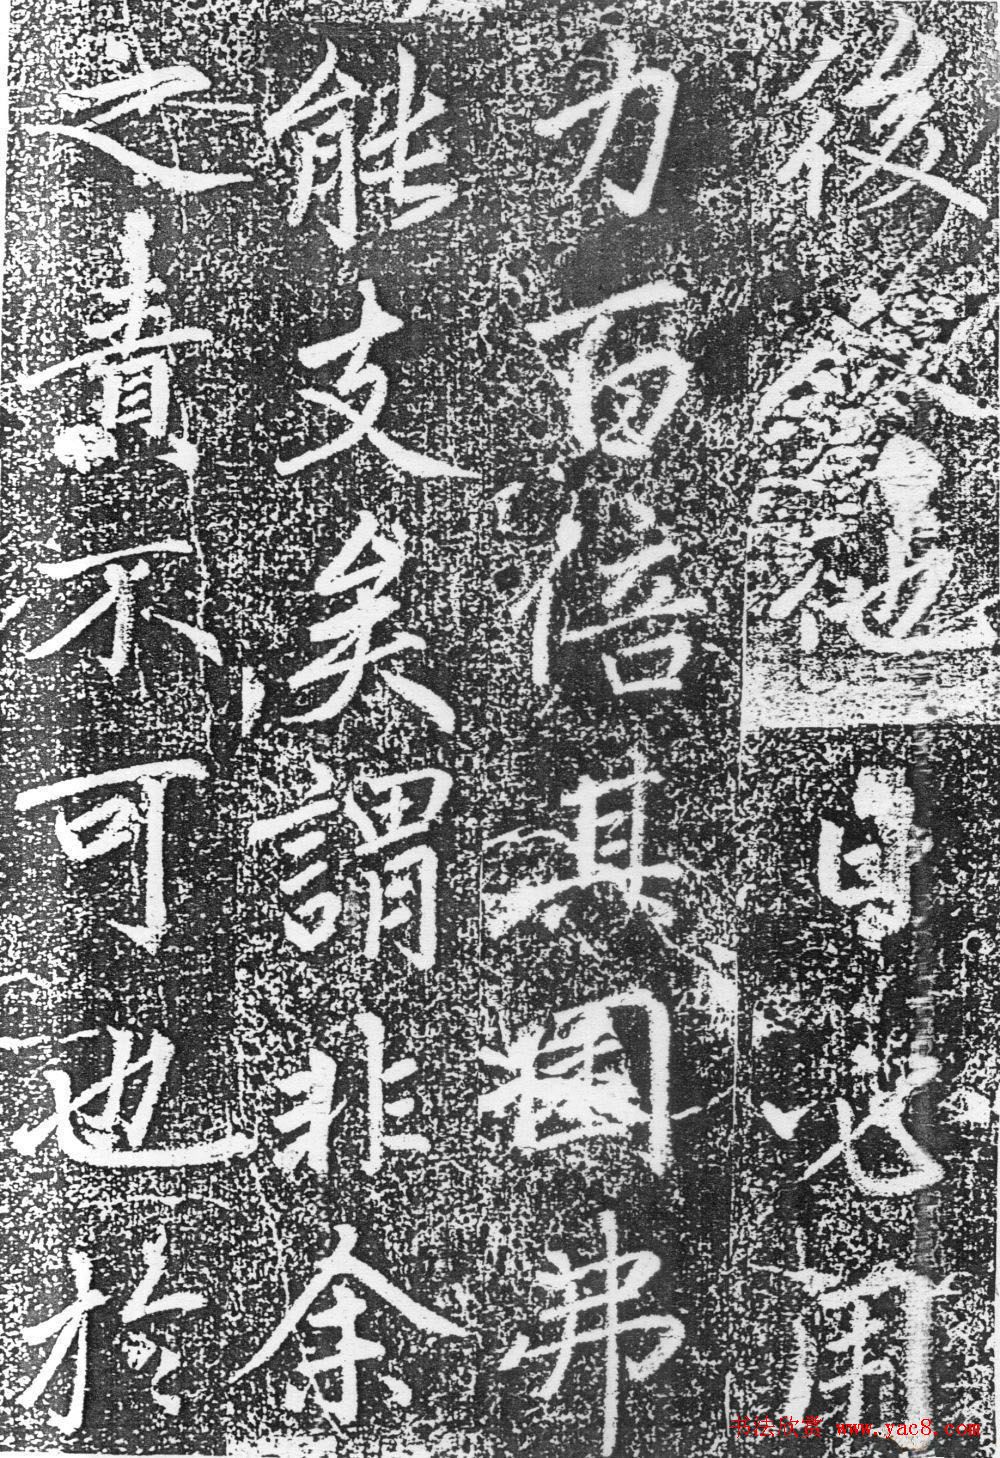 後他日必用
力百倍其弗
能支矣謂非余
之責不可也於
书法欣赏 www.yac8.com